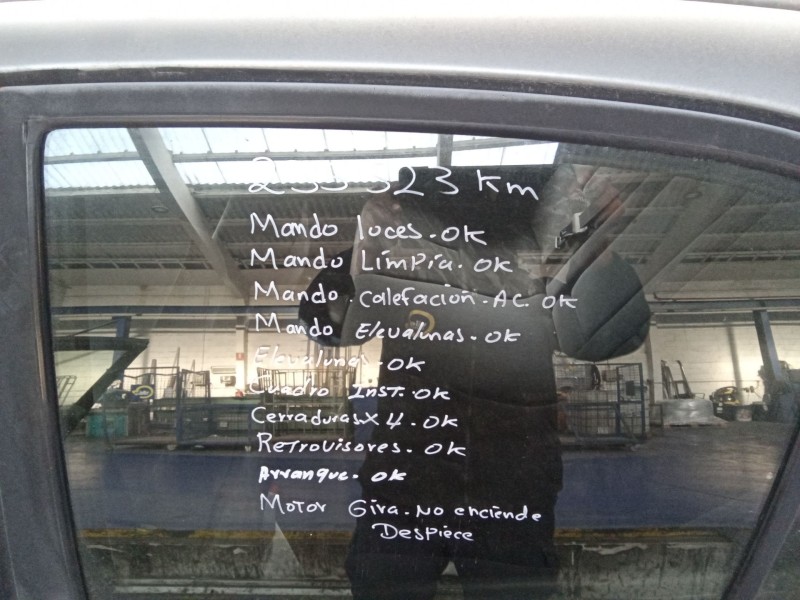 Km
Mando luces. OK
Mando Limpia. OK
Mando. Calefacion. AC. OK
Mando Elevalunas. OK
Elevalunas. OK
Cuadro Inst. OK
CerradurasX4. OK
Retrovisores. OK
Arranque. OK
Motor Gira. No enciende
Despiece